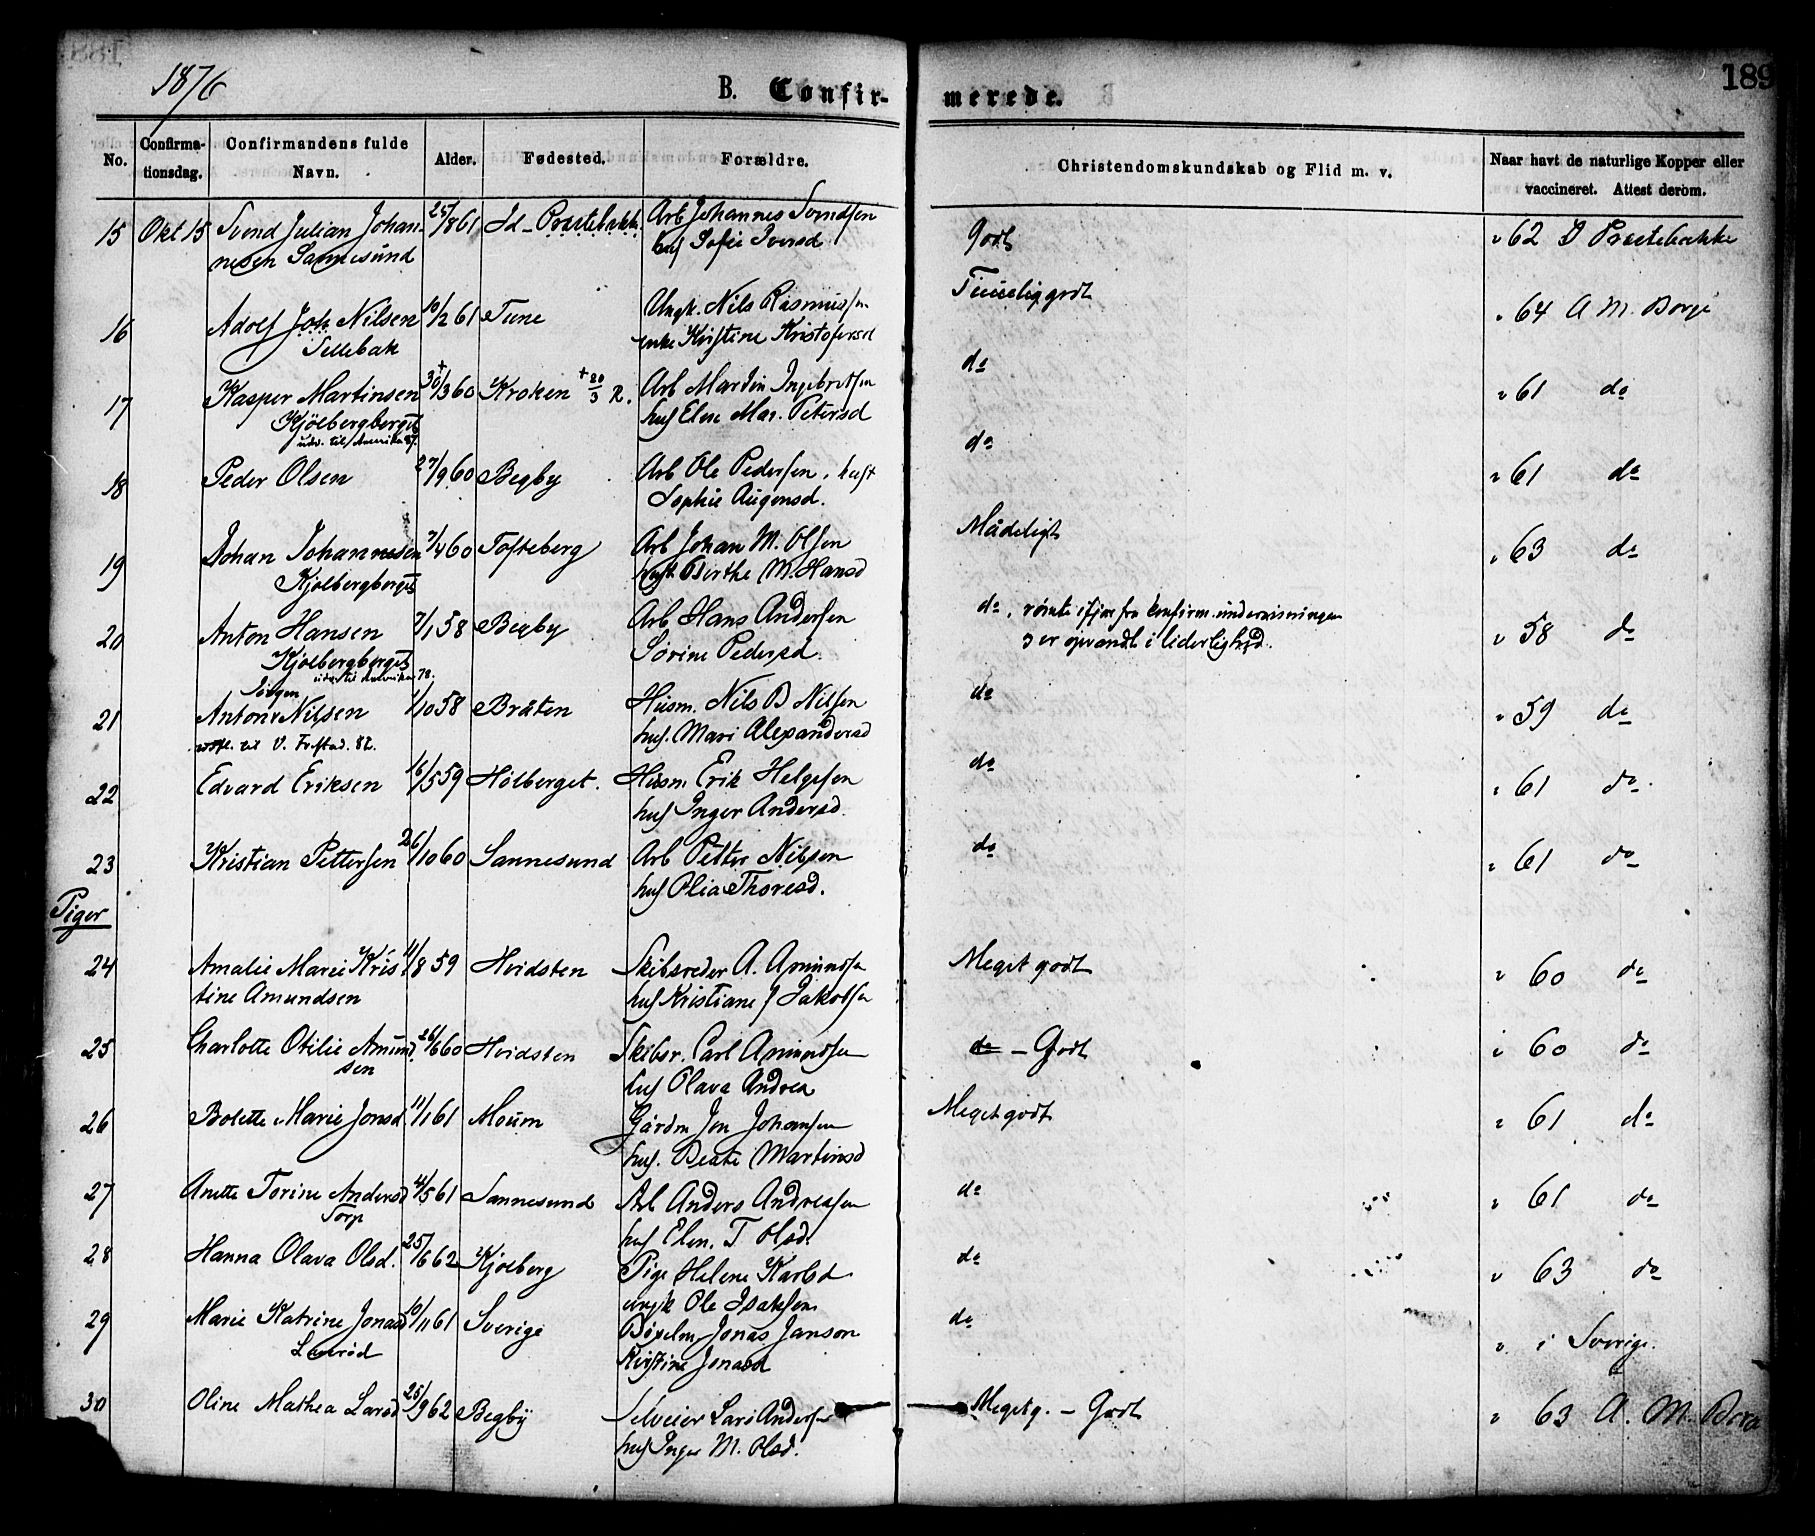 1876
B. Confir-
merede.
189
No.
Confirma-
tionsdag.
Confirmandens fulde
Navn.
Alder.
Fødested.
Forældre.
Christendomskundskab og Flid m. v.
Naar havt de naturlige Kopper eller
vaccineret. Attest derom.
15 Okt 15 Svend Julian Johan- 25/8 61 Id - Præstebakk. Arb Johannes Svendsen Godt v 62 P Præstebakke
nesen Sannesund huf Sofie Iversd
16 Adolf Joh Nilsen 10/12 61 Tune Ungk. Nils Rasmussen Timelig godt v 64 A M. Borge
Tellebak enke Kirstine Kristofersd
17 Kasper Martinsen 30/3 60 Kroken + 20/3 R. Arb Martin Ingebretsen do v 61 do
Kjölbergberget huf Elen Mar. Petersd
udv. til Amerika 87.
18 Peder Olsen 27/9 60 Begby Arb Ole Pedersen, huft do v 61 do
Sophie Augensd.
19 Johan Johannesen 7/4 60 Tofteberg Arb Johan M. Olsen Mådeligt v 63 do
Kjölbergberget huft Berthe M. Hansd
20 Anton Hansen 7/1 58 Begby Arb Hans Andersen do, römte ifjor fra konfirm. undervisningen v 58 do
Kjölbergberget Sörine Pedersd. er opvandt i liderlighed.
udv. til Amerika 78.
Jörgen
21 Anton Nilsen 1/10 58 Bråten Husm. Nils B Nilsen do v 59 do
til V. Frstad. 82. huf. Mari Alexandersd
22 Edvard Eriksen 16/5 59 Hölberget. Husm Erik Helgesen do v 61 do
huf Inger Andersd.
23 Kristian Pettersen 26/10 60 Sannesund Arb Petter Nilsen do v 61 do
huf Olia Thoresd.
Piger
24 Amalie Marie Kris 11/8 59 Hvidsten Skibsreder A. Amundsen Meget godt v 60 do
tine Amundsen huf Kristiane J Jakobsen
25 Charlotte Otilie Amund 26/6 60 Hvidsten Skibsr. Carl Amundsen do - Godt i 60 do
sen huf Olava Andrea
26 Bolette Marie Jonsd 11/1 61 Moum Gårdm Jon Johansen Meget godt v 61 do
huf. Beate Martinsd
27 Anette Torine Andersd 4/5 61 Sannesund Arb Anders Andreasen do v 61 do
Torp huf Elen. T Olsd.
28 Hanna Olava Olsd. 25/6 62 Kjölberg Pige Helene Karlsd do v 63 do
ungk Ole Isaksen
29 Marie Katrine Jonasd 10/11 61 Sverige Jonas Janson do v. i Sverige.
Kirstine Jonasd
30 Oline Mathea Larsd 25/9 62 Begby Selveier Lars Andersen Meget g. - Godt v 63 A. M. Borg
huf Inger M. Olsd.